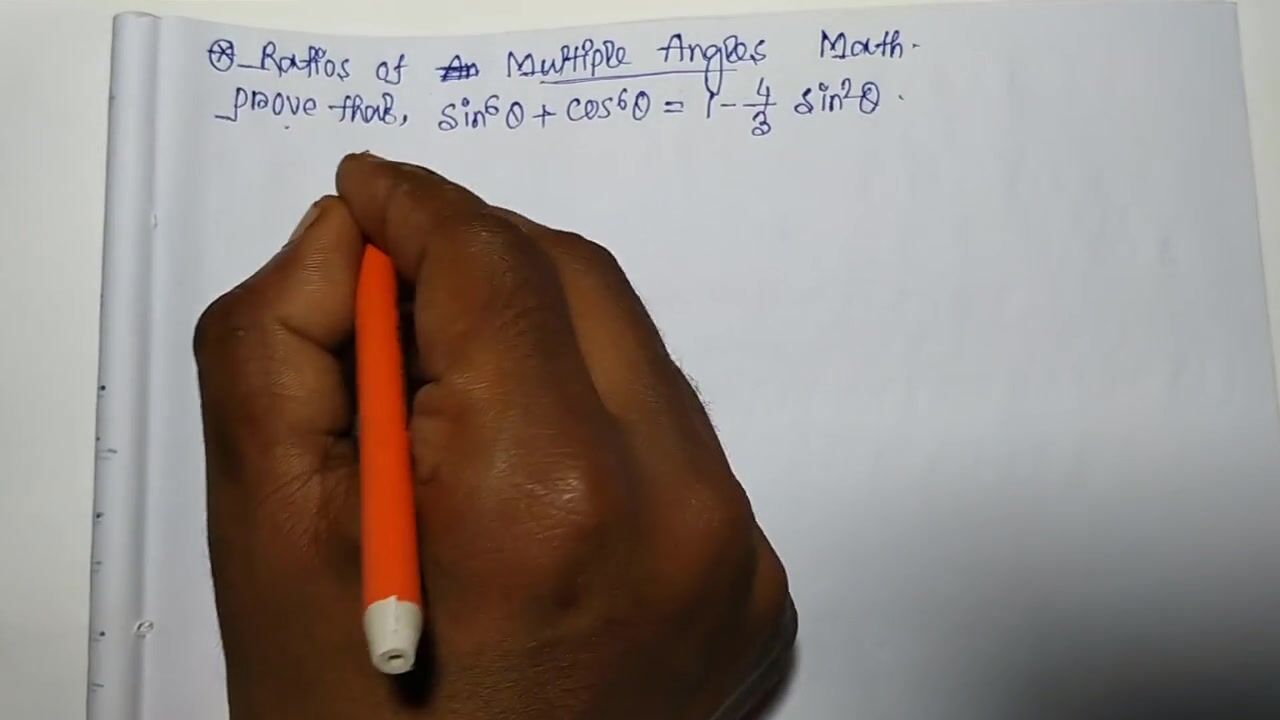 Ratios of An Multiple Angles Math.
prove that, sin⁶θ + cos⁶θ = 1 - 4/3 sin²θ.